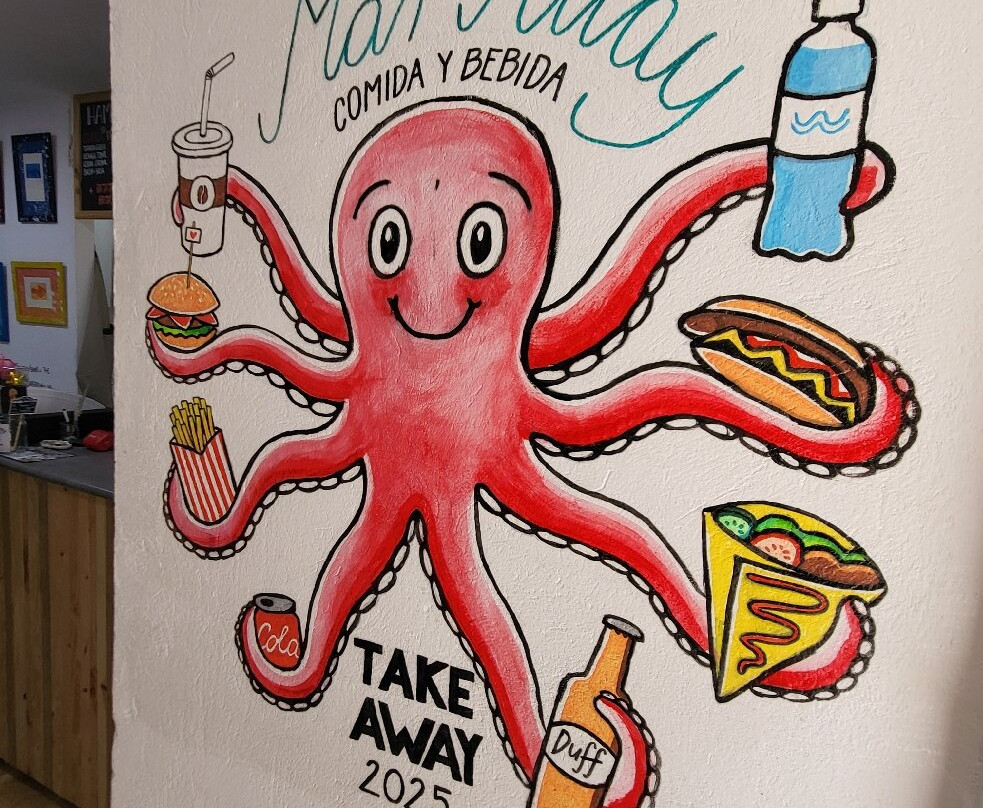 COMIDA Y BEBIDA
Cola
TAKE
AWAY
2025
Duff